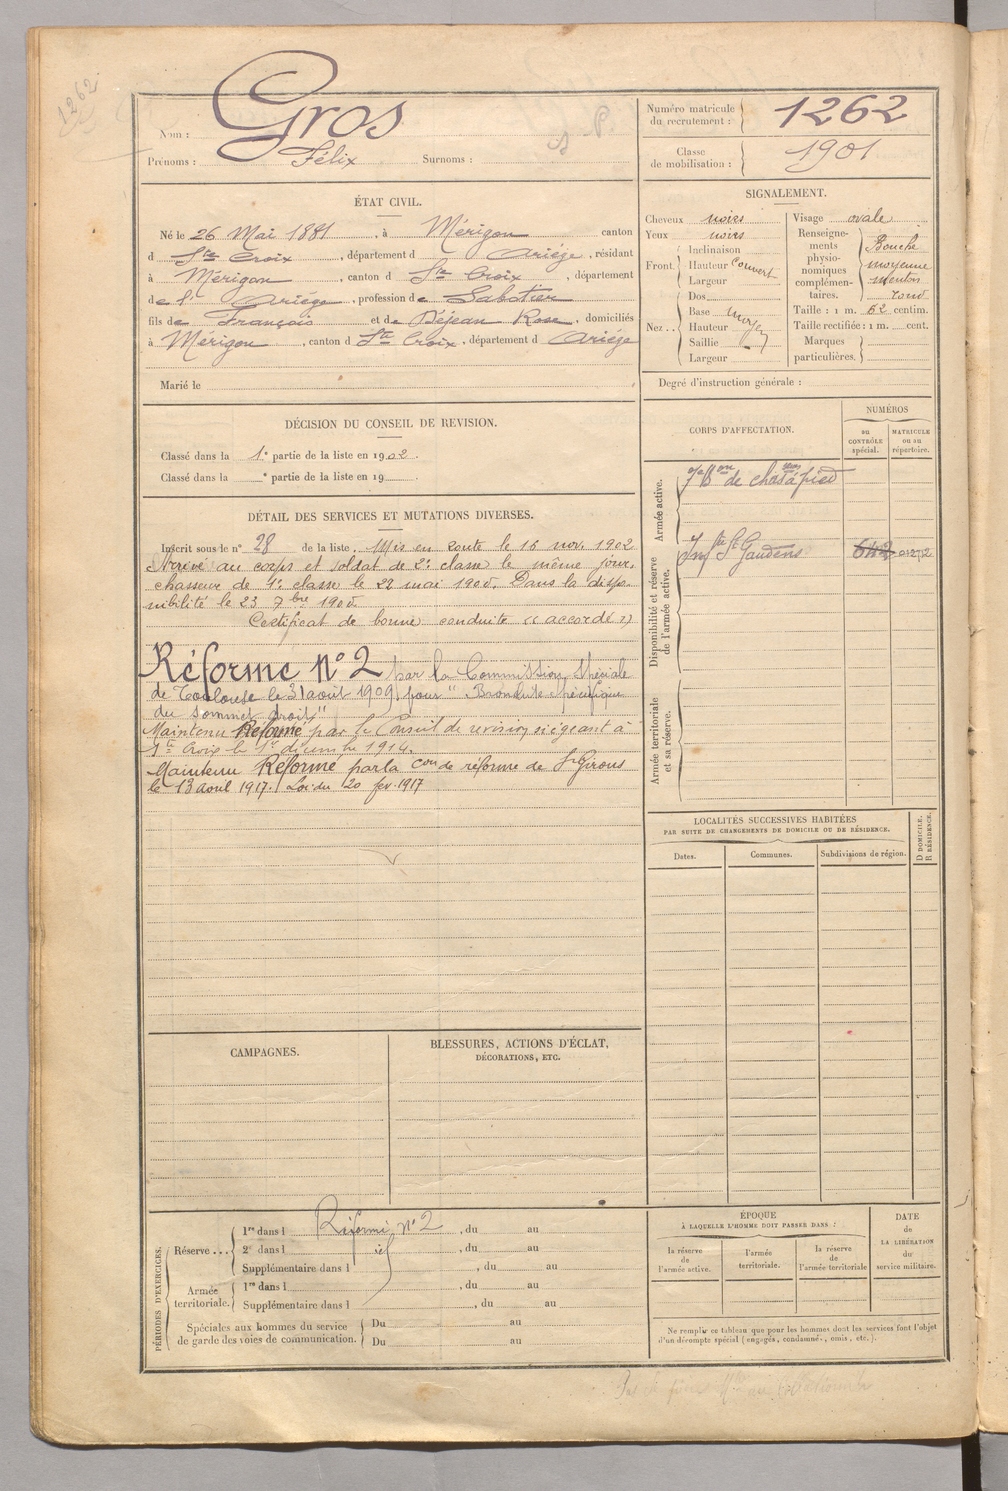 1262
Nom : Gros
Prénoms : Félix Surnoms :
Numéro matricule du recrutement : 1262
Classe de mobilisation : 1901
ÉTAT CIVIL.
Né le 26 Mai 1881, à Mérigon canton
d Ste Croix, département d Ariége, résidant
à Mérigon, canton d Ste Croix, département
de l' Ariége, profession de Sabotier
fils de François et de Déjean Rose, domiciliés
à Mérigon, canton d Ste Croix, département d Ariége
Marié le
SIGNALEMENT.
Cheveux noirs
Yeux noirs
Front
Inclinaison
Hauteur couvert
Largeur
Nez
Dos
Base moyen
Hauteur
Saillie
Largeur
Visage ovale
Renseignements physionomiques complémentaires. Bouche moyenne menton rond
Taille : 1 m. 62 centim.
Taille rectifiée : 1 m. cent.
Marques particulières.
Degré d'instruction générale :
DÉCISION DU CONSEIL DE REVISION.
Classé dans la 1e partie de la liste en 1902.
Classé dans la e partie de la liste en 19
DÉTAIL DES SERVICES ET MUTATIONS DIVERSES.
Inscrit sous le n° 28 de la liste. Mis en route le 16 nov. 1902
Arrivé au corps et soldat de 2e classe le même jour.
chasseur de 1e classe le 22 mai 1905. Dans la dispo-
nibilité le 23 7bre 1905.
Certificat de bonne conduite « accordé »
Réforme N° 2 par la Commission Spéciale
de Toulouse le 31 aout 1909, pour " Bronchite spécifique
du sommet droit"
Maintenu Réformé par le Conseil de revision siégeant à
Ste Croix le 1r décembre 1914.
Maintenu Réformé par la Con de réforme de St Girons
le 13 avril 1917. Loi du 20 fev. 1917
CORPS D'AFFECTATION.
NUMÉROS
au CONTRÔLE spécial.
MATRICULE ou au répertoire.
Armée active.
7e Bon de chasrs à pied
Disponibilité et réserve de l'armée active.
Infrie St Gaudens
Armée territoriale et sa réserve.
LOCALITÉS SUCCESSIVES HABITÉES
PAR SUITE DE CHANGEMENTS DE DOMICILE OU DE RÉSIDENCE.
Dates.
Communes.
Subdivisions de région.
D DOMICILE. R RÉSIDENCE.
CAMPAGNES.
BLESSURES, ACTIONS D'ÉCLAT,
DÉCORATIONS, ETC.
PÉRIODES D'EXERCICES.
Réserve ...
1re dans l Réformé N° 2, du au
2e dans l id, du au
Supplémentaire dans l , du au
Armée territoriale.
1re dans l , du au
Supplémentaire dans l , du au
Spéciales aux hommes du service de garde des voies de communication.
Du au
Du au
ÉPOQUE
À LAQUELLE L'HOMME DOIT PASSER DANS :
la réserve de l'armée active.
l'armée territoriale.
la réserve de l'armée territoriale
DATE de LA LIBÉRATION du service militaire.
Ne remplir ce tableau que pour les hommes dont les services font l'objet
d'un décompte spécial (engagés, condamnés, omis, etc.).